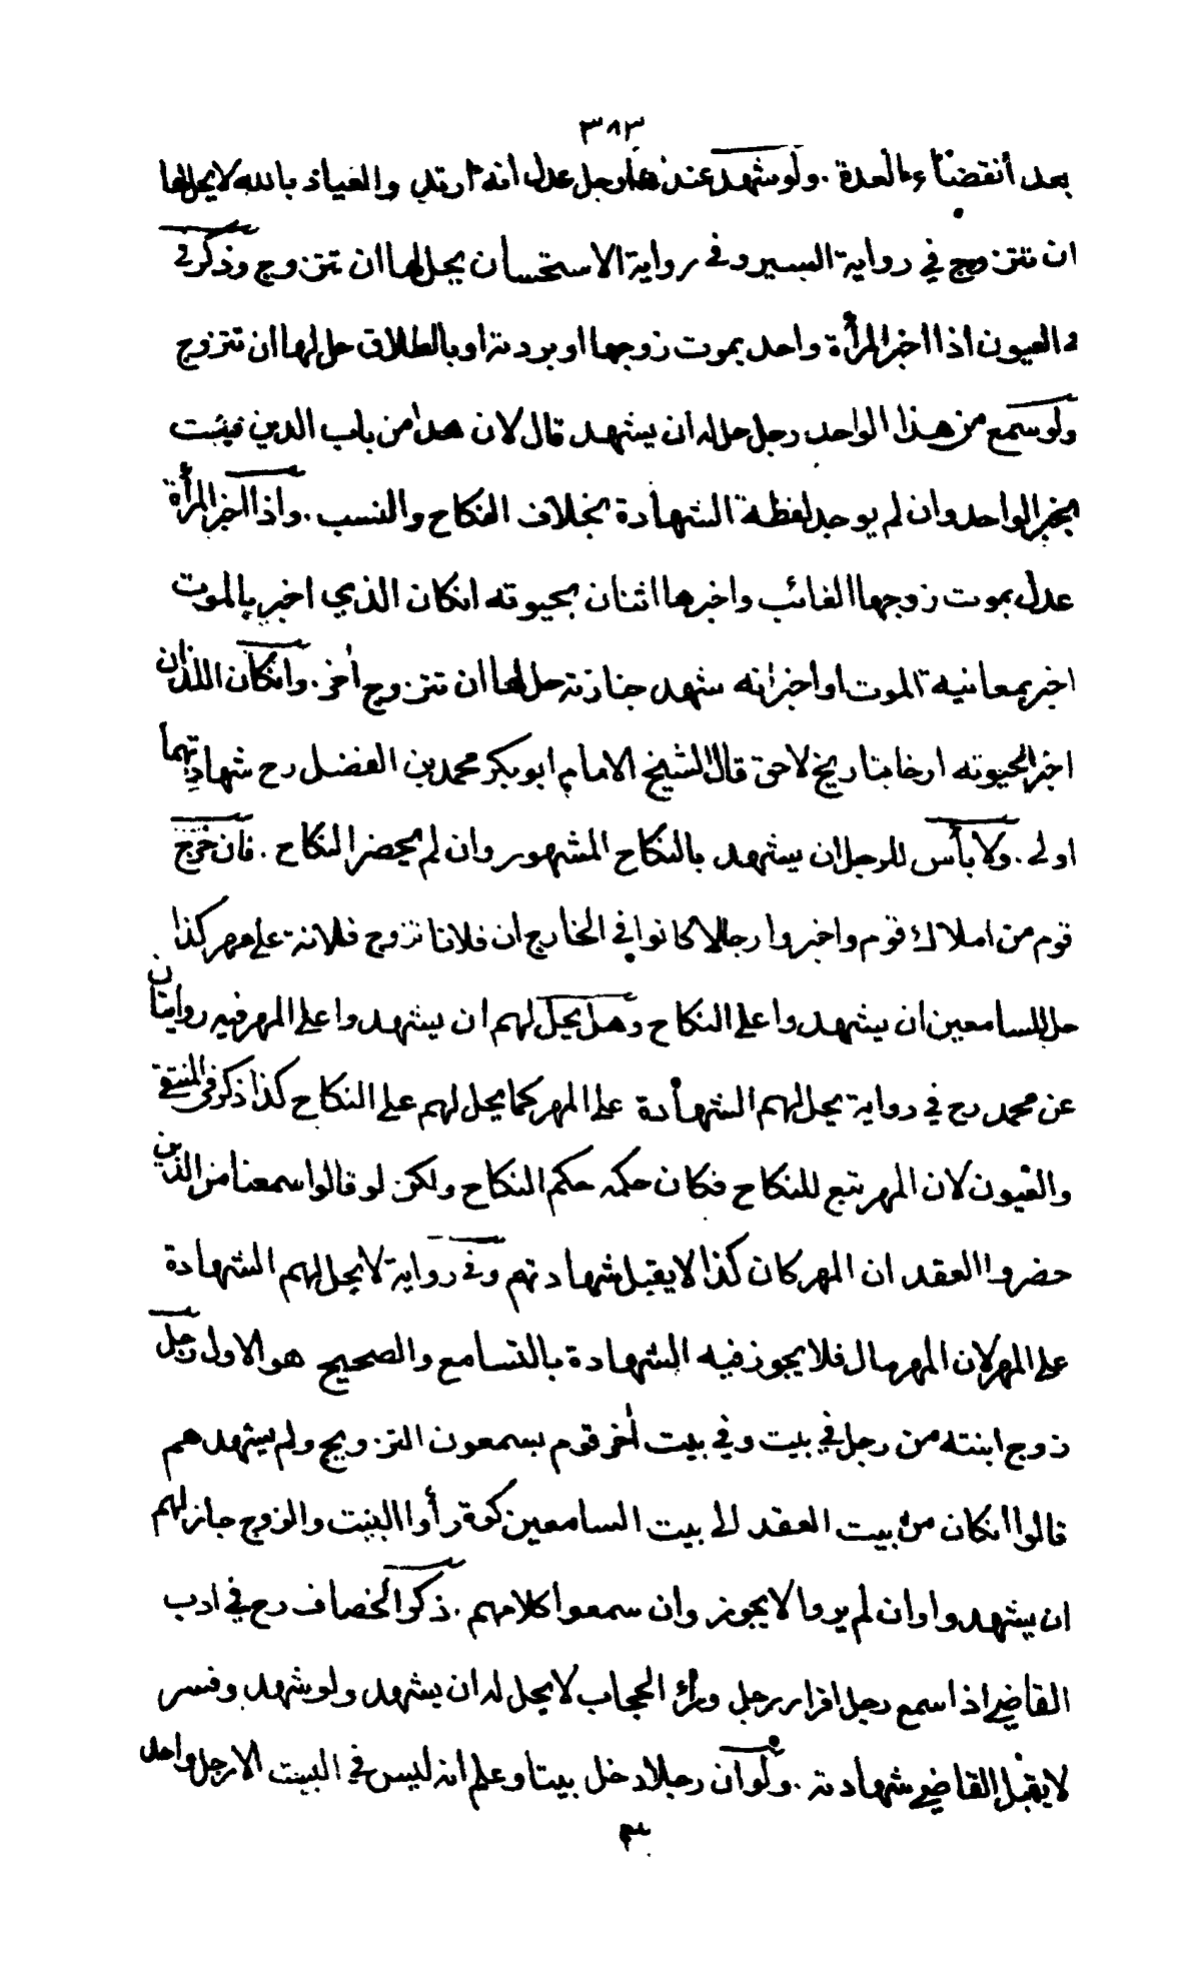 ٣٨٣
بعد أنقضاء العدة . ولو شهد عندها رجل عدل انه ارتد والعياذ بالله لا يحل لها
ان تتزوج في رواية السير وفي رواية الاستحسان يحل لها ان تتزوج وذكر في
في العيون اذا اخبر المرأة واحد بموت زوجها او بردته او بالطلاق حل لها ان تتزوج
ولو سمع من هذا الواحد رجل حل له ان يشهد قال لان هذا من باب الدين فيثبت
بخبر الواحد وان لم يوجد لفظة الشهادة بخلاف النكاح والنسب . واذا اخبر المرأة
عدل بموت زوجها الغائب واخبرها اثنان بحيوته انكان الذي اخبر بالموت
اخبر بمعاينية الموت او اخبر انه شهد جنازته حل لها ان تتزوج أخر . وانكان اللذان
اخبرا بحيوته ارخا بتاريخ لاحق قال الشيخ الامام ابو بكر محمد بن الفضل رح شهادتهما
اولى . ولا بأس للرجل ان يشهد بالنكاح المشهور وان لم يحضر النكاح . فان خرج
قوم من املاك قوم واخبروا رجالا كانوا في الخارج ان فلانا تزوج فلانة على مهر كذا
حل للسامعين ان يشهدوا على النكاح وهل يحل لهم ان يشهدوا على المهر فيه روايتان
عن محمد رح في رواية يحل لهم الشهادة على المهر كما يحل لهم على النكاح كذا ذكر في المنتقى
والعيون لان المهر تبع للنكاح فكان حكمه حكم النكاح ولكن لو قالوا سمعنا من الذين
حضروا العقد ان المهر كان كذا لا يقبل شهادتهم وفي رواية لا يحل لهم الشهادة
على المهر لان المهر مال فلا يجوز فيه الشهادة بالتسامع والصحيح هو الاول رجل
زوج ابنته من رجل في بيت وفي بيت أخر قوم يسمعون التزويج ولم يشهدهم
قالوا انكان من بيت العقد الى بيت السامعين كوة رأوا البنت والزوج جاز لهم
ان يشهدوا وان لم يروا لا يجوز وان سمعوا كلامهم . ذكر الخصاف رح في ادب
القاضي اذا سمع رجل اقرار رجل وراء الحجاب لا يحل له ان يشهد ولو شهد وفسر
لا يقبل القاضي شهادته . ولو ان رجلا دخل بيتا وعلم انه ليس في البيت الا رجل واحد